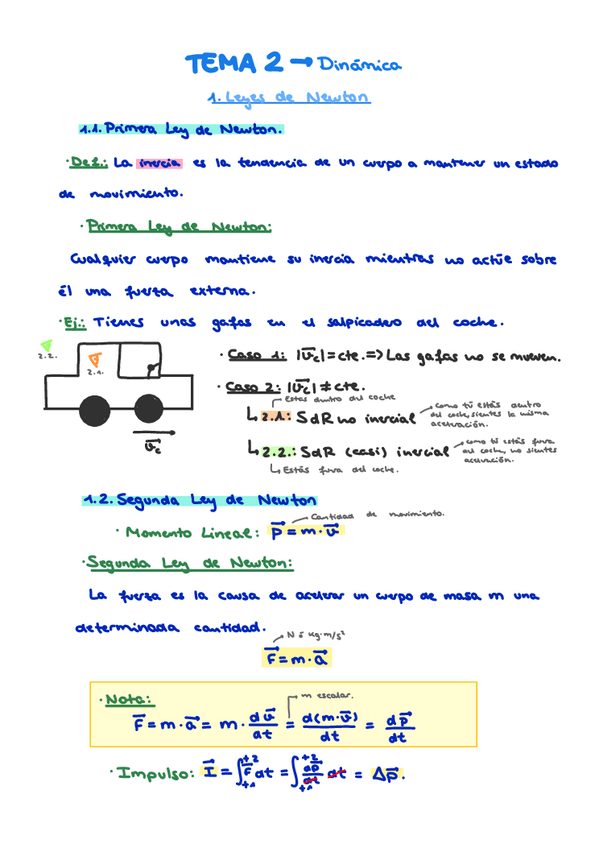 TEMA 2 → Dinámica
1. Leyes de Newton
1.1. Primera Ley de Newton.
· Def.: La inercia es la tendencia de un cuerpo a mantener un estado
de movimiento.
· Primera Ley de Newton:
Cualquier cuerpo mantiene su inercia mientras no actúe sobre
él una fuerza externa.
· Ej.: Tienes unas gafas en el salpicadero del coche.
2.2.
2.1.
v⃗c
· Caso 1: |v⃗c| = cte. => Las gafas no se mueven.
· Caso 2: |v⃗c| ≠ cte.
Estás dentro del coche
↳ 2.1.: SdR no inercial
como tú estás dentro
del coche, sientes la misma
aceleración.
↳ 2.2.: SdR (casi) inercial
como tú estás fuera
del coche, no sientes
aceleración.
↳ Estás fuera del coche.
1.2. Segunda Ley de Newton
Cantidad de movimiento.
· Momento Lineal: p⃗ = m · v⃗
· Segunda Ley de Newton:
La fuerza es la causa de acelerar un cuerpo de masa m una
determinada cantidad.
N ó kg·m/s²
F⃗ = m · a⃗
· Nota:
m escalar.
F⃗ = m · a⃗ = m · dv⃗/dt = d(m·v⃗)/dt = dp⃗/dt
· Impulso: I⃗ = ∫_{t1}^{t2} F⃗ dt = ∫_{t1}^{t2} dp⃗/dt dt = Δp⃗.